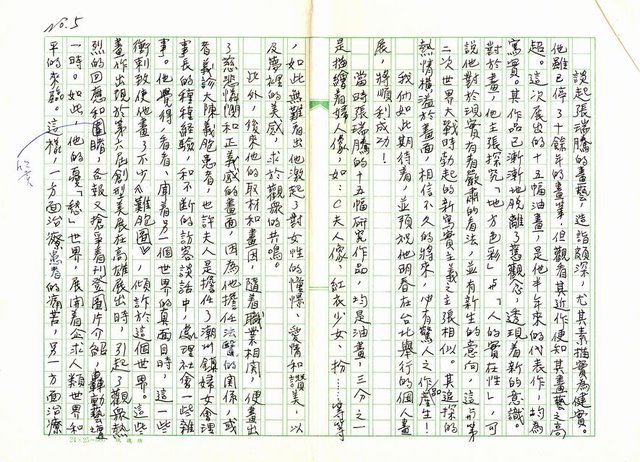 No.5
談起張瑞騰的畫藝，造詣頗深，尤其素描實為健實。
他雖已停了十餘年的畫筆，但觀看其近作便知其畫藝之高
超。這次展出的十五幅油畫，是他半年來的代表作，均為
寫實。其作品已漸漸地脫離了舊觀念，透現着新的意識。
對於畫，他主張探究「地方色彩」與「人的實在性」，可
說他對於現實有着嚴肅的看法，並有新生的意向，這與第
二次世界大戰時勃起的新寫實主義之主張相似。其追探的
熱情橫溢於畫面，相信不久的將來，必有驚人之作產生！
我們如此期待着，並預祝他明春在台北舉行的個人畫
展，將順利成功！
當時張瑞騰的十五幅研究作品，均是油畫，三分之一
是描繪着婦人像，如：C夫人像、紅衣少女、扮……等等
，如此無難看出他激起了對女性的憧憬、愛情和讚美，以
及夢裡的美感，求於觀眾的共鳴。
此外，後來他的取材和畫因，隨着職業相關，便畫出
了慈悲憫閔和正義感的畫面，因為他擔任法醫的關係，或
者義診大陳義胞患者，也許夫人是擔任了潮州鎮婦女會理
事長的種種經驗，和不斷的訪客談話中，處理社會一些雜
事。他覺得，看看、聞着另一個世界的真面目時，這一些
衝刺致使他畫了不少《難胞圖》，傾訴於這個世界。這些
畫作出現於第六屆創型美展在高雄展出時，引起了觀眾熱
烈的回應和團購，各報又搶爭着刊登圖片介紹，轟動藝壇
一時。如此，他的憂「愁」世界，展開着企求人類世界和
平的來臨。這樣，一方面治療患者的痛苦，另一方面治療
24×25